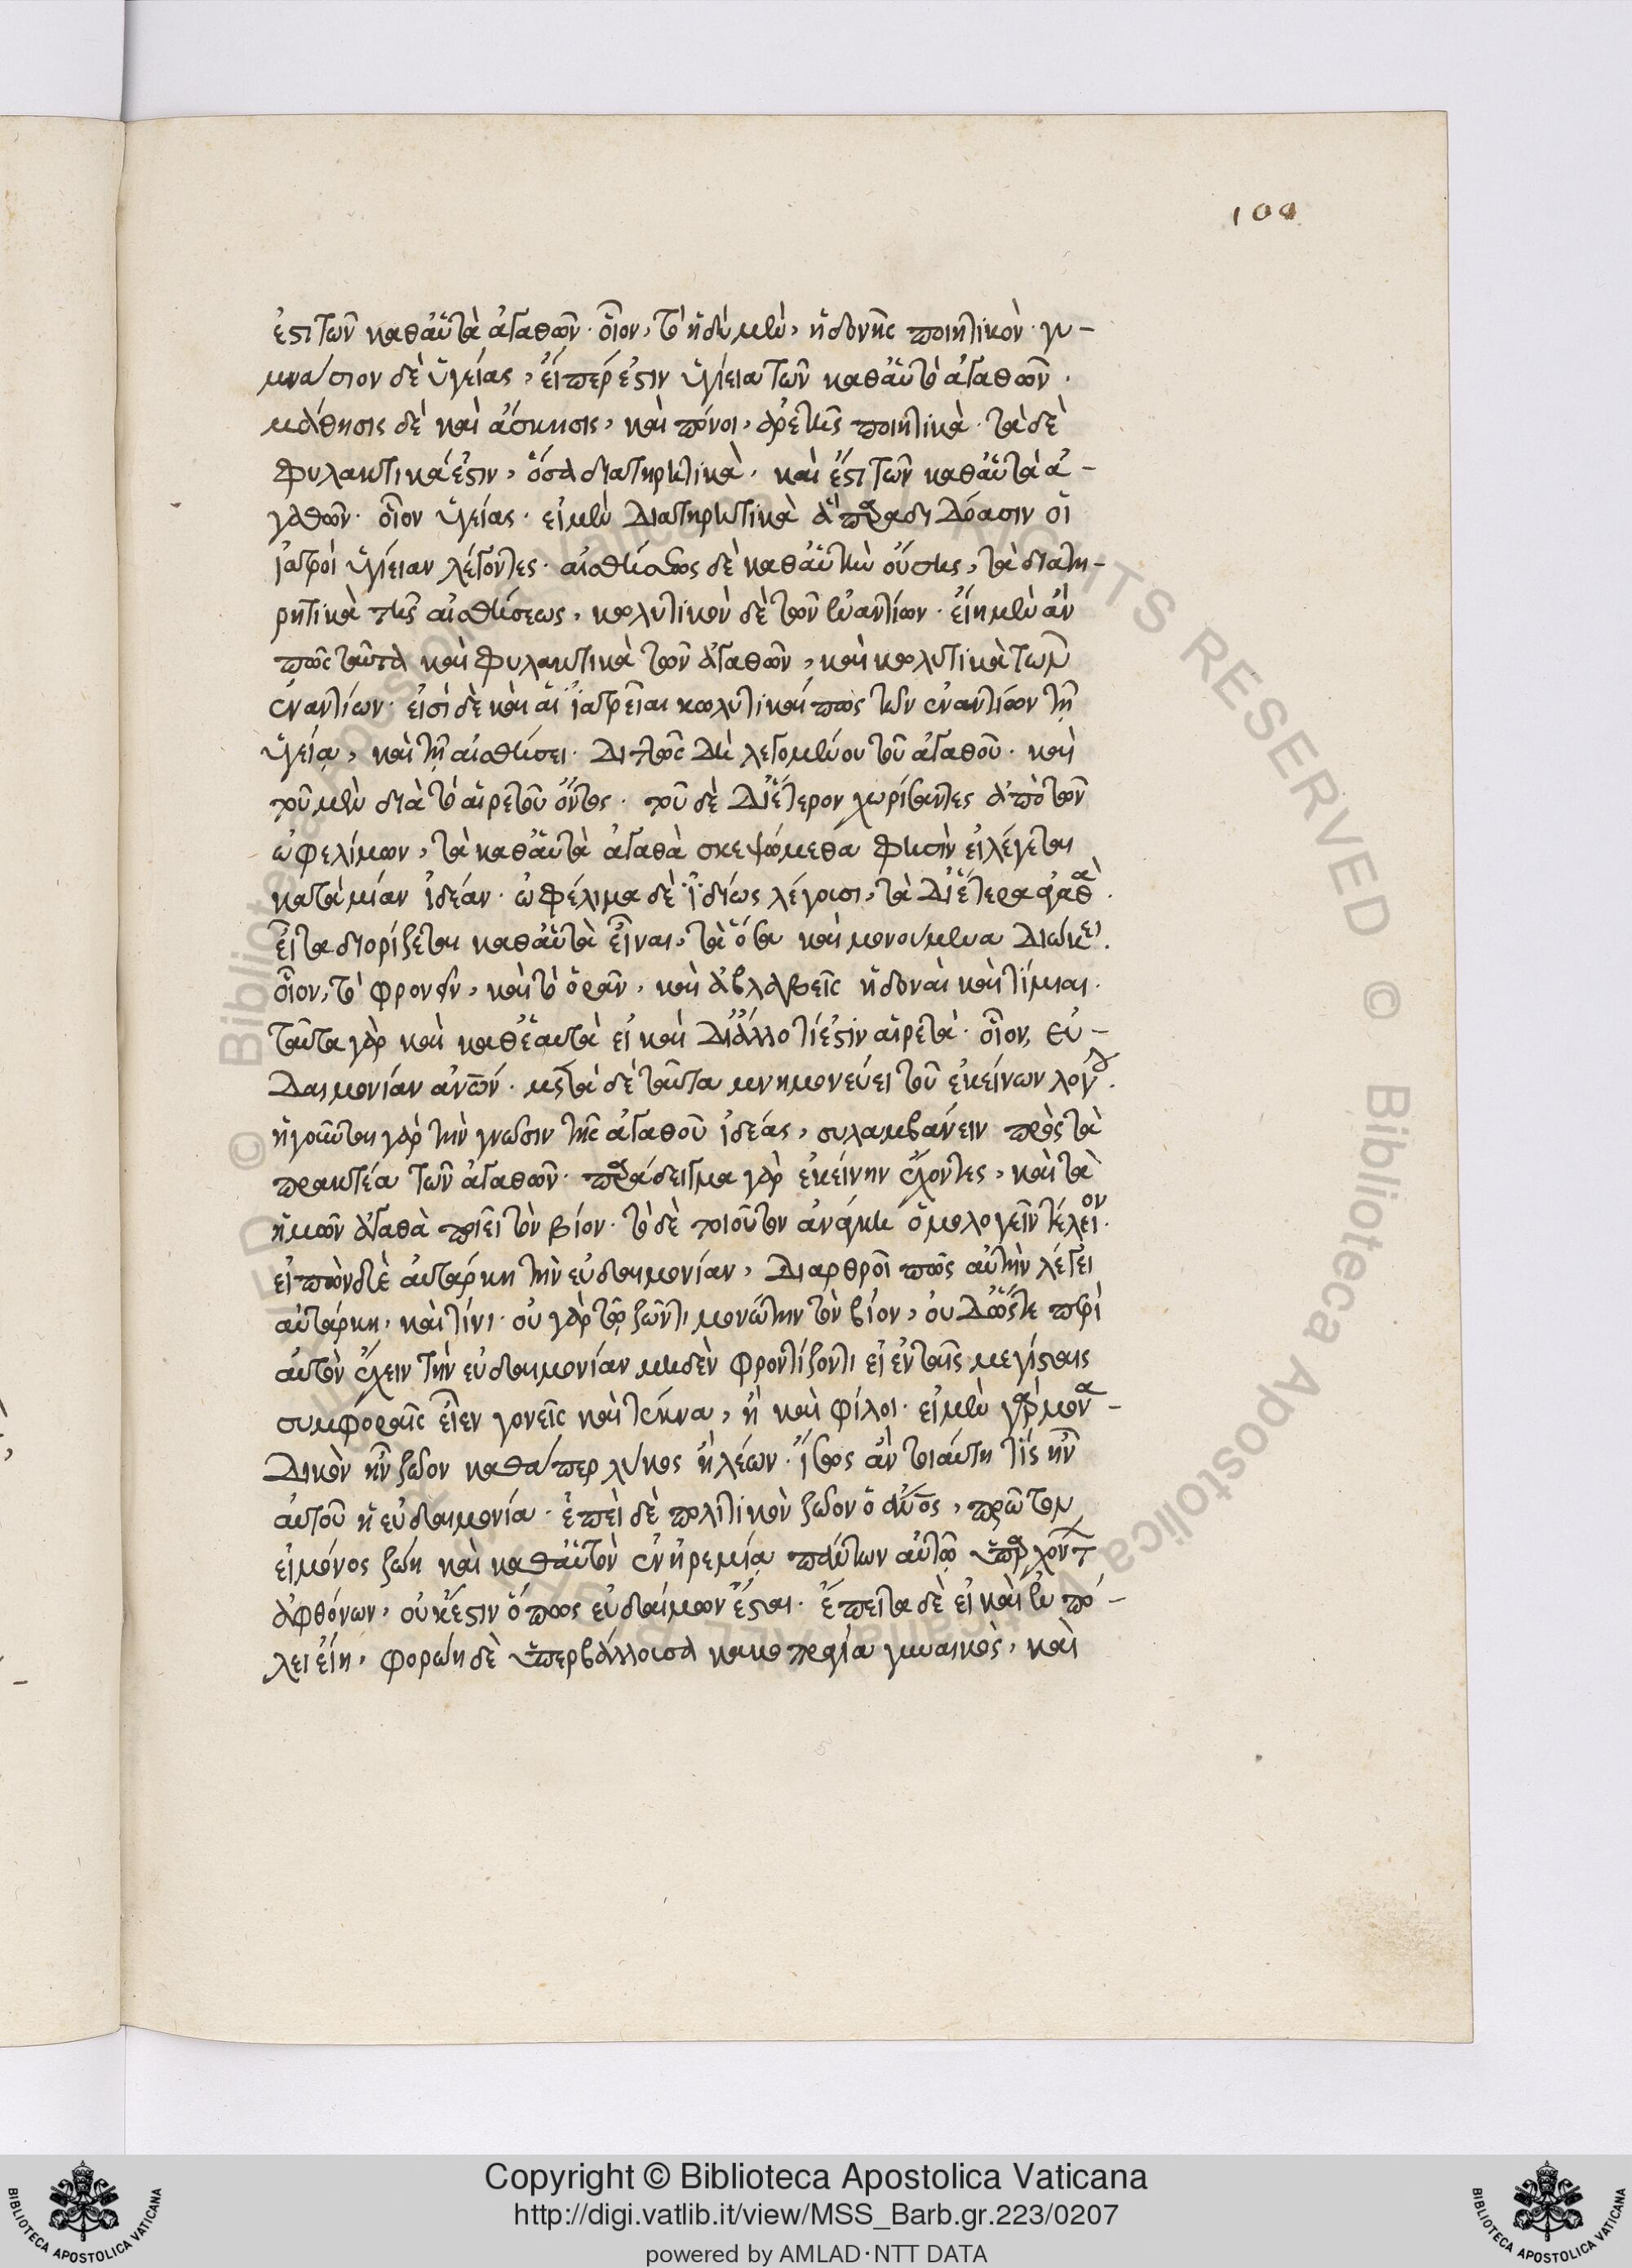 100
ἐστὶ τῶν καθ' αὑτὰ ἀγαθῶν· οἷον, τὸ ἡδὺ μὲν, ἡδονῆς ποιητικὸν· γυ-
μνάσιον δὲ ὑγείας, εἴπερ ἐστὶν ὑγίεια τῶν καθ' αὑτὸ ἀγαθῶν·
μάθησις δὲ καὶ ἄσκησις, καὶ πόνοι, ἀρετῆς ποιητικὰ· τὰ δὲ
φυλακτικά ἐστιν, ὅσα διατηρητικὰ, καὶ ἔστι τῶν καθ' αὑτὰ ἀ-
γαθῶν· οἷον ὑγείας· εἰ μὲν διατηρητικὰ οἱ
ἰατροὶ ὑγίειαν λέγοντες· αἰσθήσεως δὲ καθ' αὑτὴν οὔσης, τὰ διατη-
ρητικὰ τῆς αἰσθήσεως, κωλυτικὸν δὲ τῶν ἐναντίων· εἴη μὲν ἂν
πῶς ταῦτα καὶ φυλακτικὰ τῶν ἀγαθῶν, καὶ κωλυτικὰ τῶν
ἐναντίων· εἰσὶ δὲ καὶ αἱ ἰατρεῖαι κωλυτικαί πως τῶν ἐναντίων τῇ
ὑγείᾳ, καὶ τῇ αἰσθήσει· διττῶς δὴ λεγομένου τοῦ ἀγαθοῦ· καὶ
τοῦ μὲν διὰ τὸ αἱρετοῦ ὄντος· τοῦ δὲ δι' ἕτερον χωρίσαντες ἀπὸ τῶν
ὠφελίμων, τὰ καθ' αὑτὰ ἀγαθὰ σκεψώμεθά φησιν εἰ λέγεται
κατὰ μίαν ἰδέαν· ὠφέλιμα δὲ ἰδίως λέγουσι, τὰ δι' ἕτερα ἀγαθὰ·
εἶτα διορίζεται καθ' αὑτὰ εἶναι, τὰ ὅσα καὶ μονούμενα διώκει·
οἷον, τὸ φρονεῖν, καὶ τὸ ὁρᾶν, καὶ ἀβλαβεῖς ἡδοναὶ καὶ τίμιαι·
ταῦτα γὰρ καὶ καθ' ἑαυτὰ εἰ καὶ δι' ἄλλο τί ἐστιν αἱρετὰ· οἷον, εὐ-
δαιμονίαν ἀνων· μετὰ δὲ ταῦτα μνημονεύει τοῦ ἐκείνων λόγου·
ἡγοῦνται γὰρ τὴν γνῶσιν τῆς ἀγαθοῦ ἰδέας, συλαμβάνειν πρὸς τὰ
πρακτέα τῶν ἀγαθῶν· παράδειγμα γὰρ ἐκείνην ἔχοντες, καὶ τὰ
ἡμῶν ἀγαθὰ ποιεῖ τὸν βίον· τὸ δὲ τοιοῦτον ἀνάγκη ὁμολογεῖν τέλειον·
εἰπὼν δὲ αὐτάρκη τὴν εὐδαιμονίαν, διαρθροῖ πῶς αὐτὴν λέγει
αὐτάρκη, καὶ τίνι· οὐ γὰρ τῷ ζῶντι μονώτην τὸν βίον, οὐδ' ὥστε περὶ
αὐτὸν ἔχειν τὴν εὐδαιμονίαν μηδὲν φροντίζοντι εἰ ἐν ταῖς μεγίσταις
συμφοραῖς εἶεν γονεῖς καὶ τέκνα, ἢ καὶ φίλοι· εἰ μὲν γὰρ μονα-
δικὸν ἦν ζῶον καθάπερ λύκος ἢ λέων· ἴσως ἂν τοιαύτη τίς ἦν
αὐτοῦ ἡ εὐδαιμονία· ἐπεὶ δὲ πολιτικὸν ζῶον ὁ ἄνος, πρῶτον
εἰ μόνος ζώη καὶ καθ' αὑτὸν ἐν ἠρεμίᾳ πάντων αὐτῷ ὑπαρχόντ
ἀφθόνων, οὐκ ἔστιν ὅπως εὐδαίμων ἔσται· ἔπειτα δὲ εἰ καὶ ἐν πό-
λει εἴη, φορῴη δὲ ὑπερβάλλουσα κακοπραγία γυναικὸς, καὶ
Copyright © Biblioteca Apostolica Vaticana
http://digi.vatlib.it/view/MSS_Barb.gr.223/0207
powered by AMLAD·NTT DATA